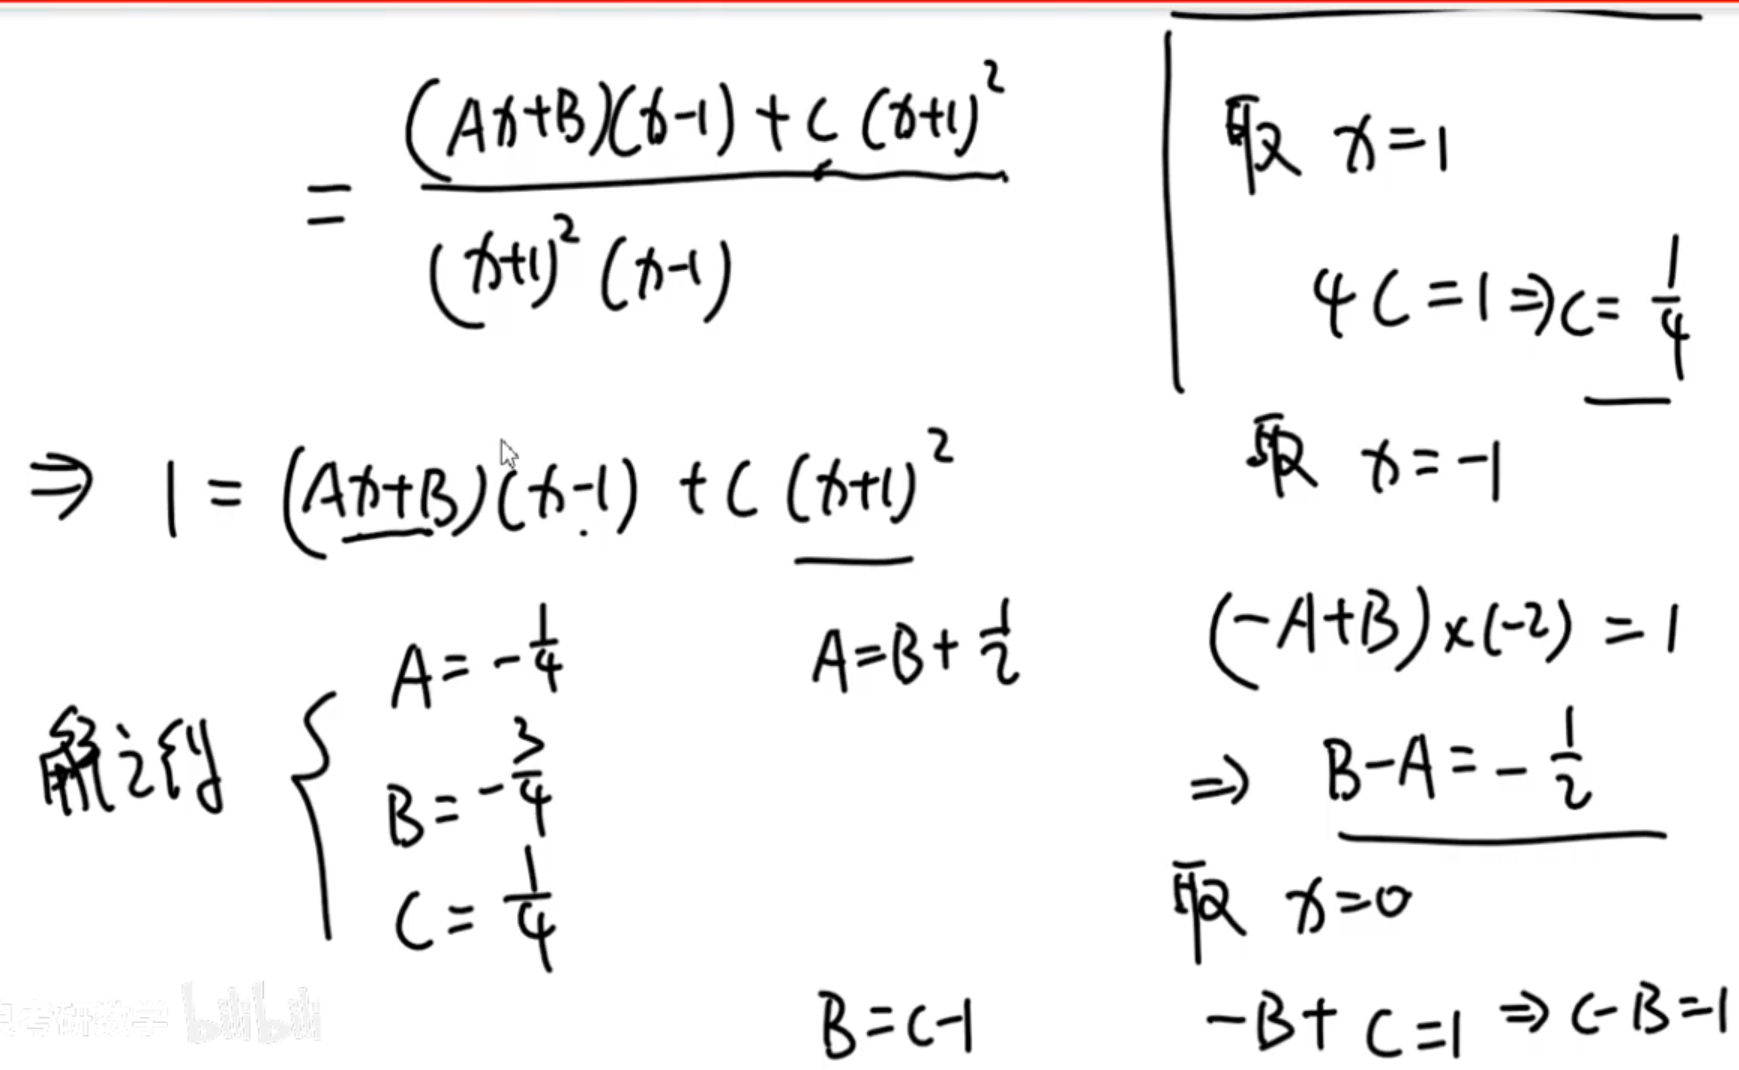 = \frac{(Ax+B)(x-1)+C(x+1)^2}{(x+1)^2(x-1)}
⇒ 1 = (Ax+B)(x-1) + C(x+1)^2
解之得 { A = -\frac{1}{4}
B = -\frac{3}{4}
C = \frac{1}{4}
A = B + \frac{1}{2}
B = C-1
取 x=1
4C=1 ⇒ C = \frac{1}{4}
取 x=-1
(-A+B)×(-2) = 1
⇒ B-A = -\frac{1}{2}
取 x=0
-B+C=1 ⇒ C-B=1
考研数学 bilibili